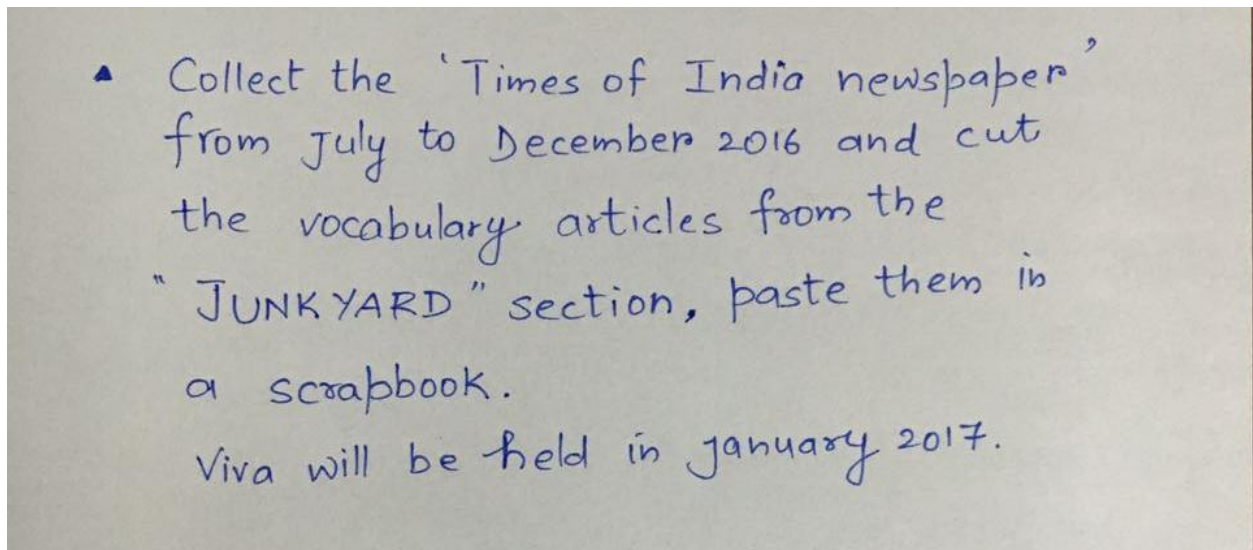 ▲ Collect the 'Times of India newspaper'
from July to December 2016 and cut
the vocabulary articles from the
"JUNK YARD" section, paste them in
a scrapbook.
Viva will be held in january 2017.